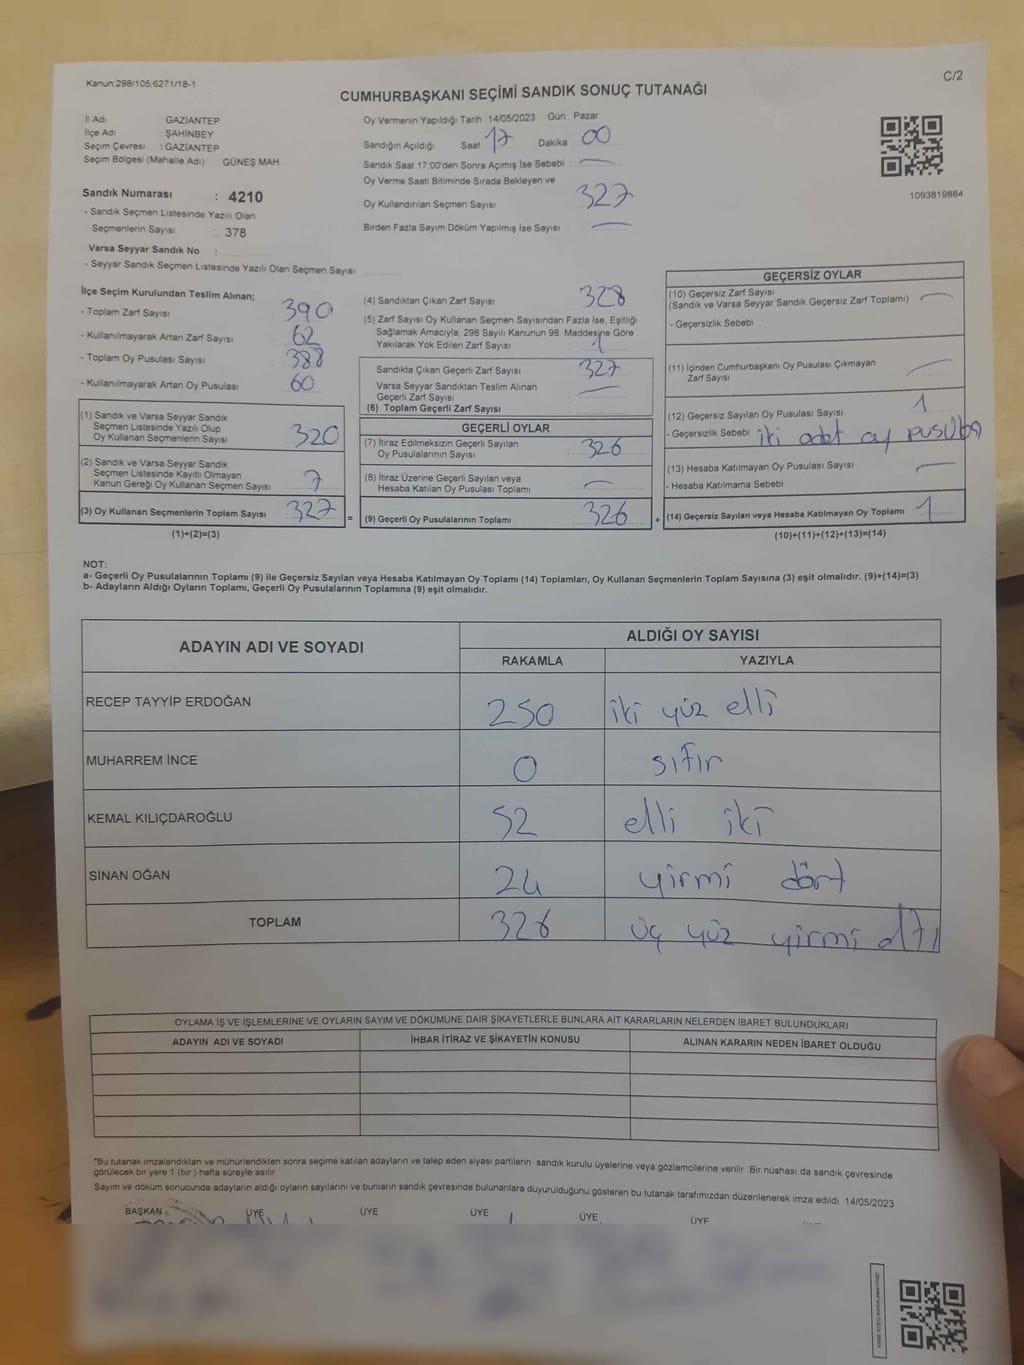 Kanun:298/105,6271/18-1
C/2
CUMHURBAŞKANI SEÇİMİ SANDIK SONUÇ TUTANAĞI
İl Adı GAZİANTEP
İlçe Adı ŞAHİNBEY
Seçim Çevresi : GAZİANTEP
Seçim Bölgesi (Mahalle Adı) GÜNEŞ MAH.
Sandık Numarası : 4210
- Sandık Seçmen Listesinde Yazılı Olan
Seçmenlerin Sayısı : 378
Varsa Seyyar Sandık No :
- Seyyar Sandık Seçmen Listesinde Yazılı Olan Seçmen Sayısı
Oy Vermenin Yapıldığı Tarih :14/05/2023 Gün : Pazar
Sandığın Açıldığı Saat 17 Dakika 00
Sandık Saat 17:00'den Sonra Açımış İse Sebebi
Oy Verme Saati Bitiminde Sırada Bekleyen ve
Oy Kullandırılan Seçmen Sayısı 327
Birden Fazla Sayım Döküm Yapılmış İse Sayısı
1093819864
İlçe Seçim Kurulundan Teslim Alınan;
- Toplam Zarf Sayısı 390
- Kullanılmayarak Artan Zarf Sayısı 62
- Toplam Oy Pusulası Sayısı 388
- Kullanılmayarak Artan Oy Pusulası 60
(1) Sandık ve Varsa Seyyar Sandık
Seçmen Listesinde Yazılı Olup
Oy Kullanan Seçmenlerin Sayısı 320
(2) Sandık ve Varsa Seyyar Sandık
Seçmen Listesinde Kayıtlı Olmayan
Kanun Gereği Oy Kullanan Seçmen Sayısı 7
(3) Oy Kullanan Seçmenlerin Toplam Sayısı 327 =
(1)+(2)=(3)
(4) Sandıktan Çıkan Zarf Sayısı 328
(5) Zarf Sayısı Oy Kullanan Seçmen Sayısından Fazla İse, Eşitliği
Sağlamak Amacıyla, 298 Sayılı Kanunun 98. Maddesine Göre
Yakılarak Yok Edilen Zarf Sayısı 1
Sandıkta Çıkan Geçerli Zarf Sayısı 327
Varsa Seyyar Sandıktan Teslim Alınan
Geçerli Zarf Sayısı
(6) Toplam Geçerli Zarf Sayısı
GEÇERLİ OYLAR
(7) İtiraz Edilmeksizin Geçerli Sayılan
Oy Pusulalarının Sayısı 326
(8) İtiraz Üzerine Geçerli Sayılan veya
Hesaba Katılan Oy Pusulası Toplamı
(9) Geçerli Oy Pusulalarının Toplamı 326 +
GEÇERSİZ OYLAR
(10) Geçersiz Zarf Sayısı
(Sandık ve Varsa Seyyar Sandık Geçersiz Zarf Toplamı)
- Geçersizlik Sebebi
(11) İçinden Cumhurbaşkanı Oy Pusulası Çıkmayan
Zarf Sayısı
(12) Geçersiz Sayılan Oy Pusulası Sayısı 1
- Geçersizlik Sebebi iki adet oy pusulası
(13) Hesaba Katılmayan Oy Pusulası Sayısı
- Hesaba Katılmama Sebebi
(14) Geçersiz Sayılan veya Hesaba Katılmayan Oy Toplamı 1
(10)+(11)+(12)+(13)=(14)
NOT:
a- Geçerli Oy Pusulalarının Toplamı (9) ile Geçersiz Sayılan veya Hesaba Katılmayan Oy Toplamı (14) Toplamları, Oy Kullanan Seçmenlerin Toplam Sayısına (3) eşit olmalıdır. (9)+(14)=(3)
b- Adayların Aldığı Oyların Toplamı, Geçerli Oy Pusulalarının Toplamına (9) eşit olmalıdır.
ADAYIN ADI VE SOYADI
ALDIĞI OY SAYISI
RAKAMLA YAZIYLA
RECEP TAYYİP ERDOĞAN 250 iki yüz elli
MUHARREM İNCE 0 sıfır
KEMAL KILIÇDAROĞLU 52 elli iki
SİNAN OĞAN 24 yirmi dört
TOPLAM 326 üç yüz yirmi altı
OYLAMA İŞ VE İŞLEMLERİNE VE OYLARIN SAYIM VE DÖKÜMÜNE DAİR ŞİKAYETLERLE BUNLARA AİT KARARLARIN NELERDEN İBARET BULUNDUKLARI
ADAYIN ADI VE SOYADI İHBAR İTİRAZ VE ŞİKAYETİN KONUSU ALINAN KARARIN NEDEN İBARET OLDUĞU
*Bu tutanak imzalandıktan ve mühürlendikten sonra seçime katılan adayların ve talep eden siyasi partilerin sandık kurulu üyelerine veya gözlemcilerine verilir. Bir nüshası da sandık çevresinde
görülecek bir yere 1 (bir) hafta süreyle asılır.
Sayım ve döküm sonucunda adayların aldığı oyların sayılarını ve bunların sandık çevresinde bulunanlara duyurulduğunu gösteren bu tutanak tarafımızdan düzenlenerek imza edildi. 14/05/2023
BAŞKAN ÜYE ÜYE ÜYE ÜYE ÜYE